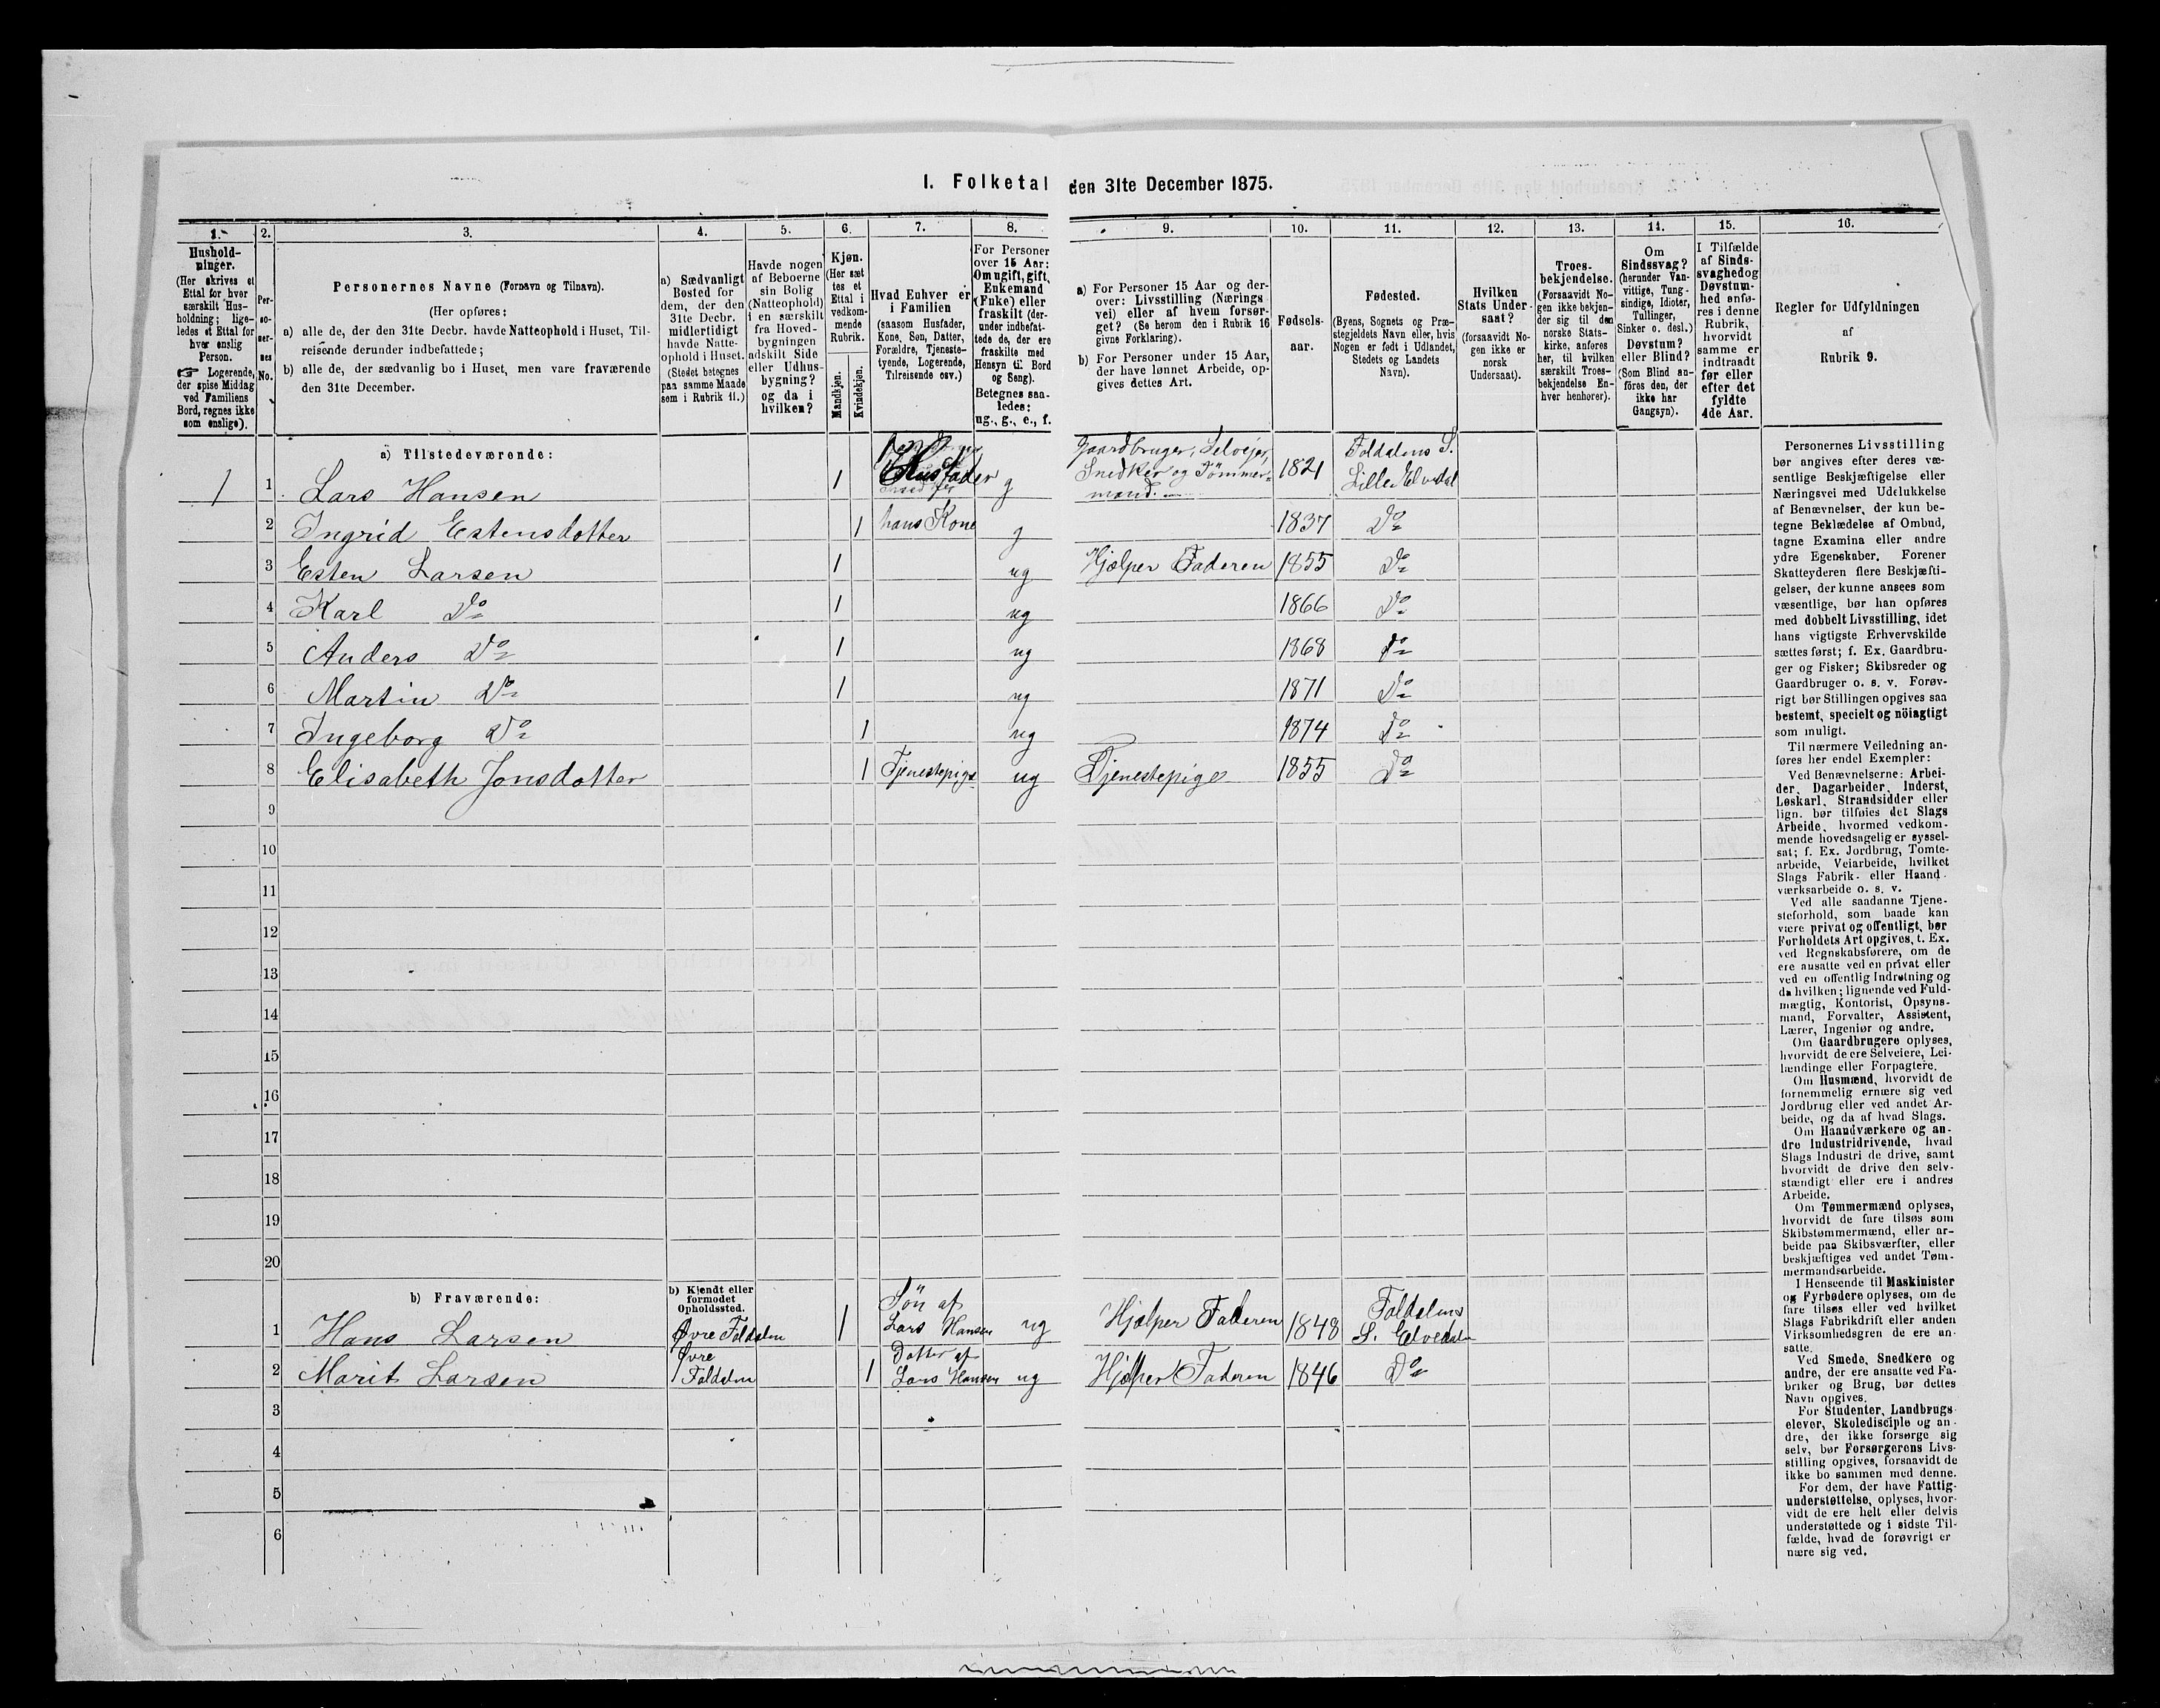 I. Folketal den 31te December 1875.
1.
Hushold-
ninger.
(Her skrives et
Ettal for hver
særskilt Hus-
holdning; lige-
ledes et Ettal for
hver enslig
Person.
☞ Logerende,
der spise Middag
ved Familiens
Bord, regnes ikke
som enslige).
2.
Per-
so-
ner-
nes
No.
3.
Personernes Navne (Fornavn og Tilnavn).
(Her opføres:
a) alle de, der den 31te Decbr. havde Natteophold i Huset, Til-
reisende derunder indbefattede;
b) alle de, der sædvanlig bo i Huset, men vare fraværende
den 31te December.
4.
a) Sædvanligt
Bosted for
dem, der den
31te Decbr.
midlertidigt
havde Natte-
ophold i Huset.
(Stedet betegnes
paa samme Maade
som i Rubrik 11.)
5.
Havde nogen
af Beboerne
sin Bolig
(Natteophold)
i en særskilt
fra Hoved-
bygningen
adskilt Side
eller Udhus-
bygning?
og da i
hvilken?
6.
Kjøn.
(Her sæt
tes et
Ettal i
vedkom-
mende
Rubrik.
Mandkjøn.
Kvindekjøn.
7.
Hvad Enhver er
i Familien
(saasom Husfader,
Kone, Søn, Datter,
Forældre, Tjeneste-
tyende, Logerende,
Tilreisende osv.)
8.
For Personer
over 15 Aar:
Om ugift, gift,
Enkemand
(Fuke) eller
fraskilt (der-
under indbefat-
tede de, der ere
fraskilte med
Hensyn til Bord
og Seng).
Betegnes saa-
ledes:
ug., g., e., f.
9.
a) For Personer 15 Aar og der-
over: Livsstilling (Nærings
vei) eller af hvem forsør-
get? (Se herom den i Rubrik 16
givne Forklaring).
b) For Personer under 15 Aar,
der have lønnet Arbeide, op-
gives dettes Art.
10.
Fødsels-
aar.
11.
Fødested.
(Byens, Sognets og Præ-
stegjeldets Navn eller, hvis
Nogen er født i Udlandet,
Stedets og Landets
Navn).
12.
Hvilken
Stats Under-
saat?
(forsaavidt No-
gen ikke er
norsk
Undersaat).
13.
Troes-
bekjendelse.
(Forsaavidt No-
gen ikke bekjen-
der sig til den
norske Stats-
kirke, anføres
her, til hvilken
særskilt Troes-
bekjendelse En-
hver henhører).
14.
Om
Sindssvag?
(herunder Van-
vittige, Tung-
sindige, Idioter,
Tullinger,
Sinker o. desl.)
Døvstum?
eller Blind?
(Som Blind an-
føres den, der
ikke har
Gangsyn).
15.
I Tilfælde
af Sinds-
svaghed og
Døvstum-
hed anfø-
res i denne
Rubrik,
hvorvidt
samme er
indtraadt
før eller
efter det
fyldte
4de Aar.
16.
Regler for Udfyldningen
af
Rubrik 9.
a) Tilstedeværende:
1 1 Lars Hansen 1 Husfader g Gaardbruger, Selveier,
Snedker og Tömmer-
mand. 1821 Foldalens S.
Lille Elvedal
2 Ingrid Estensdotter 1 hans Kone g 1837 Do
3 Esten Larsen 1 ug Hjælper Faderen 1855 Do
4 Karl Do 1 ug 1866 Do
5 Anders Do 1 ug 1868 Do
6 Martin Do 1 ug 1871 Do
7 Ingeborg Do 1 ug 1874 Do
8 Elisabeth Jonsdotter 1 Tjenestepige ug Tjenestepige 1855 Do
9
10
11
12
13
14
15
16
17
18
19
20
b) Fraværende:
b) Kjendt eller
formodet
Opholdssted.
1 Hans Larsen Øvre Foldalen 1 Sön af
Lars Hansen ug Hjælper Faderen 1848 Foldalens
L. Elvedalen
2 Marit Larsen Øvre
Foldalen 1 Datter af
Lars Hansen ug Hjælper Faderen 1846 Do
3
4
5
6
Personernes Livsstilling
bør angives efter deres væ-
sentlige Beskjæftigelse eller
Næringsvei med Udelukkelse
af Benævnelser, der kun be-
tegne Beklædelse af Ombud,
tagne Examina eller andre
ydre Egenskaber. Forener
Skatteyderen flere Beskjæfti-
gelser, der kunne ansees som
væsentlige, bør han opføres
med dobbelt Livsstilling, idet
hans vigtigste Erhvervskilde
sættes først; f. Ex. Gaardbru-
ger og Fisker; Skibsreder og
Gaardbruger o. s. v. Forøv-
rigt bør Stillingen opgives saa
bestemt, specielt og nöiagtigt
som muligt.
Til nærmere Veiledning an-
føres her endel Exempler:
Ved Benævnelserne: Arbei-
der, Dagarbeider, Inderst,
Løskarl, Strandsidder eller
lign. bør tilføies det Slags
Arbeide, hvormed vedkom-
mende hovedsagelig er syssel-
sat; f. Ex. Jordbrug, Tomte-
arbeide, Veiarbeide, hvilket
Slags Fabrik- eller Haand-
værksarbeide o. s. v.
Ved alle saadanne Tjene-
steforhold, som baade kan
være privat og offentligt, bør
Forholdets Art opgives, t. Ex.
ved Regnskabsførere, om de
ere ansatte ved en privat eller
ved en offentlig Indretning og
da hvilken; lignende ved Fuld-
mægtig, Kontorist, Opsyns-
mand, Forvalter, Assistent,
Lærer, Ingeniør og andre.
Om Gaardbrugere oplyses,
hvorvidt de ere Selveiere, Lei-
lændinge eller Forpagtere.
Om Husmænd, hvorvidt de
fornemmelig ernære sig ved
Jordbrug eller ved andet Ar-
beide, og da af hvad Slags.
Om Haandværkere og an-
dre Industridrivende, hvad
Slags Industri de drive, samt
hvorvidt de drive den selv-
stændigt eller ere i andres
Arbeide.
Om Tømmermænd oplyses,
hvorvidt de fare tilsøs som
Skibstømmermænd, eller ar-
beide paa Skibsværfter, eller
beskjæftiges ved andet Tøm-
mermandsarbeide.
I Henseende til Maskinister
og Fyrbødere oplyses, om de
fare tilsøs eller ved hvilket
Slags Fabrikdrift eller anden
Virksomhedsgren de ere an-
satte.
Ved Smede, Snedkere og
andre, der ere ansatte ved Fa-
briker og Brug, bør dettes
Navn opgives.
For Studenter, Landbrugs
elever, Skoledisciple og an-
dre, der ikke forsørge sig
selv, bør Forsørgerens Livs-
stilling opgives, forsaavidt de
ikke bo sammen med denne.
For dem, der have Fattig-
understøttelse, oplyses, hvor-
vidt de ere helt eller delvis
understøttede og i sidste Til-
fælde, hvad de forøvrigt er
nære sig ved.